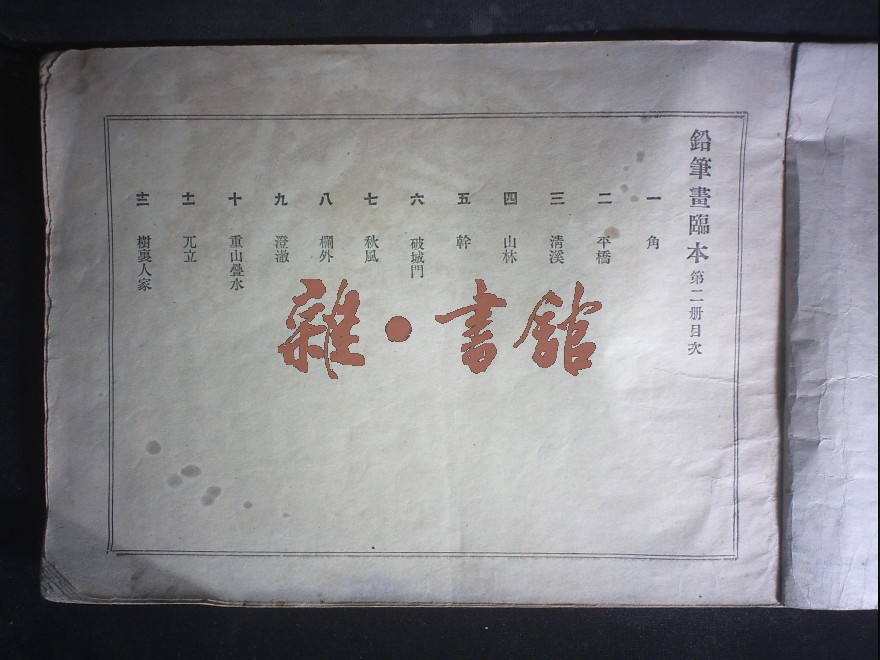 鉛筆畫臨本 第二册目次
一 角
二 平橋
三 清溪
四 山林
五 幹
六 破城門
七 秋風
八 欄外
九 澄澈
十 重山疊水
十一 兀立
十二 樹裏人家
雜·書館